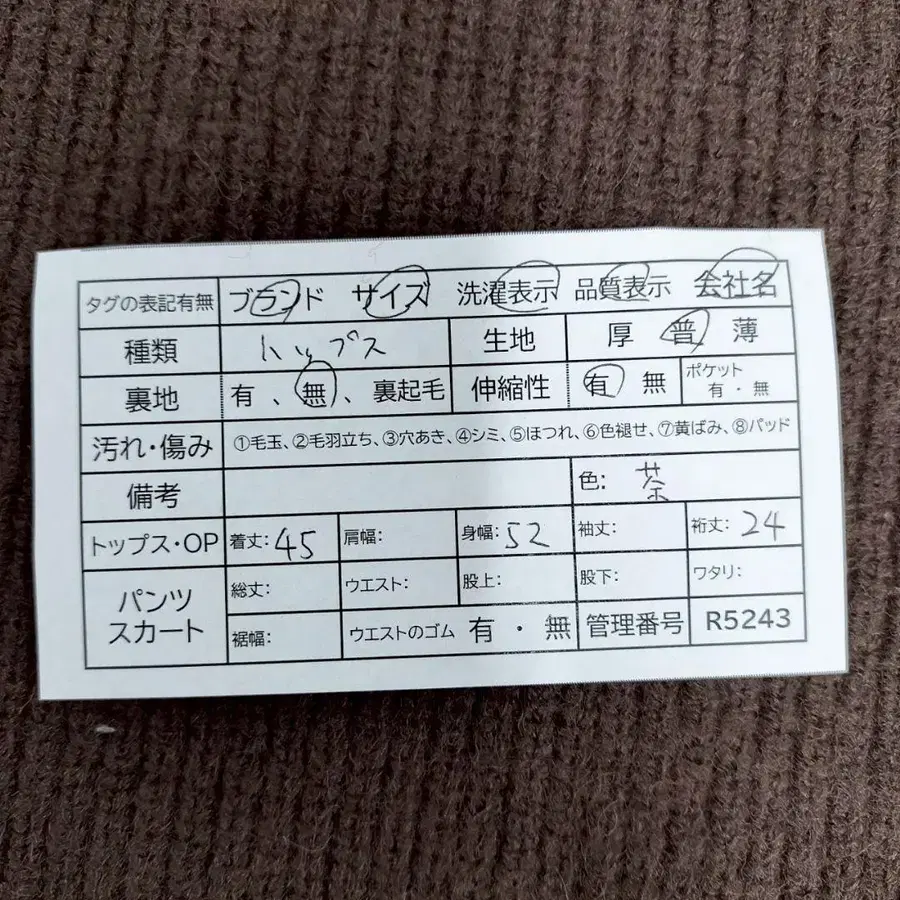 タグの表記有無 ブランド サイズ 洗濯表示 品質表示 会社名
種類 トップス 生地 厚 普 薄
裏地 有 、無 、裏起毛 伸縮性 有 無 ポケット 有・無
汚れ・傷み ①毛玉、②毛羽立ち、③穴あき、④シミ、⑤ほつれ、⑥色褪せ、⑦黄ばみ、⑧パッド
備考 色: 茶
トップス・OP 着丈: 45 肩幅: 身幅: 52 袖丈: 裄丈: 24
パンツ スカート 総丈: ウエスト: 股上: 股下: ワタリ:
裾幅: ウエストのゴム 有 ・ 無 管理番号 R5243